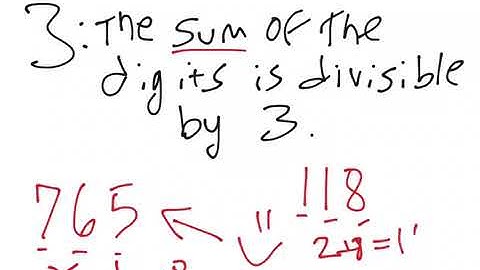 3: The sum of the
digits is divisible
by 3.
765
118